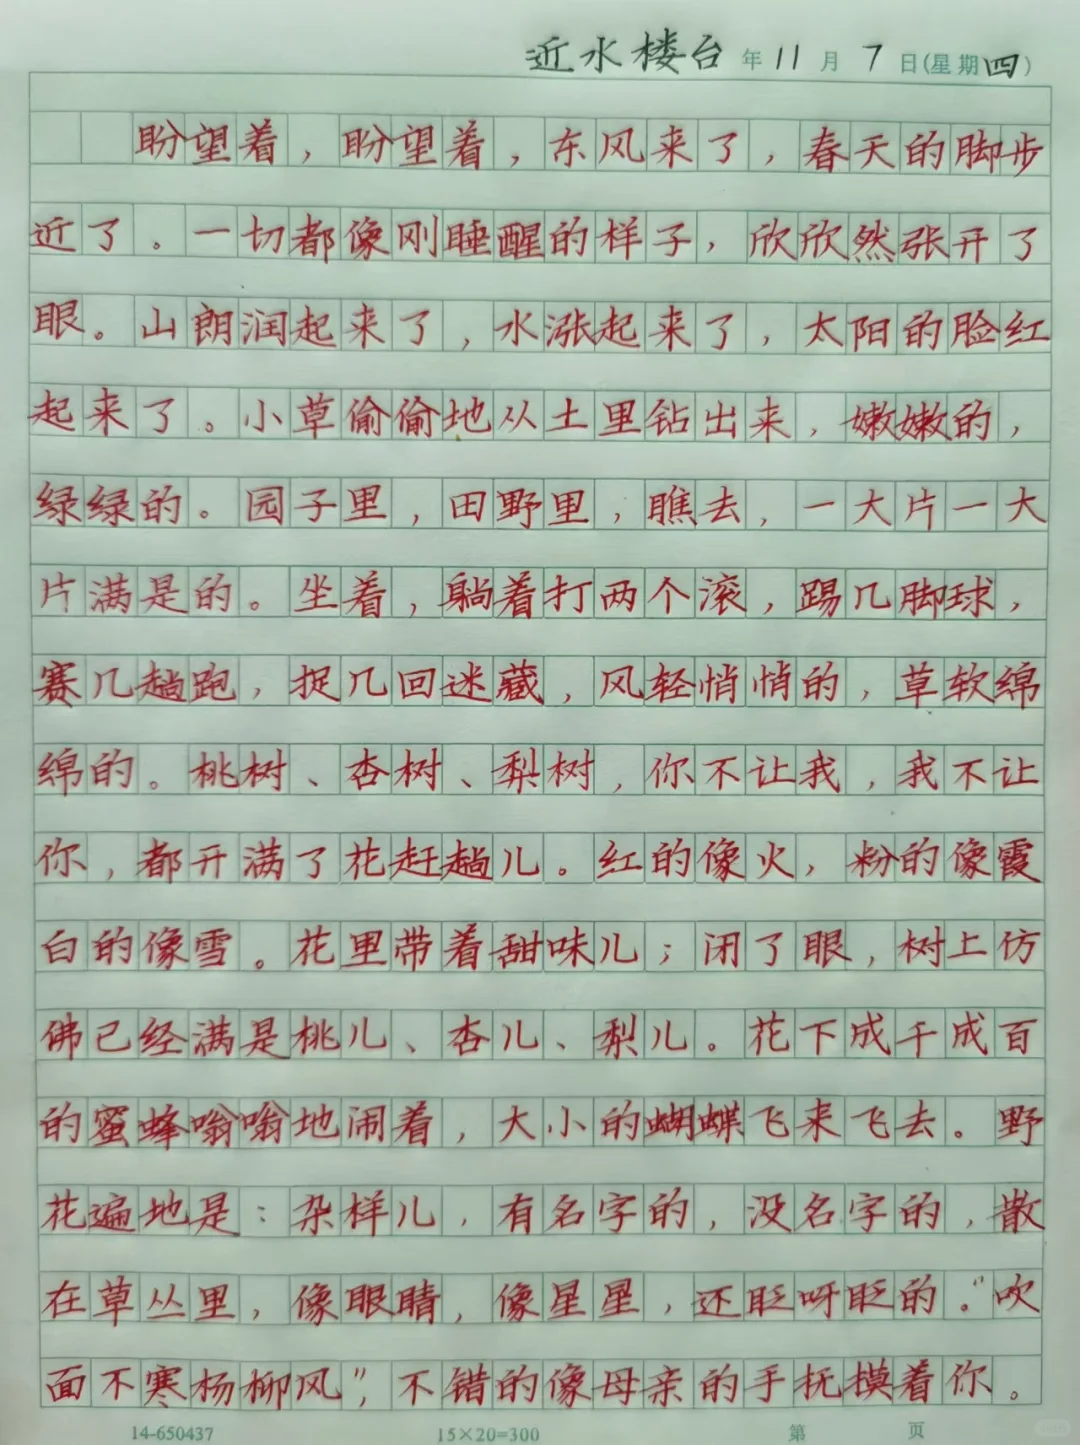 近水楼台年11月7日(星期四)
盼望着，盼望着，东风来了，春天的脚步
近了。一切都像刚睡醒的样子，欣欣然张开了
眼。山朗润起来了，水涨起来了，太阳的脸红
起来了。小草偷偷地从土里钻出来，嫩嫩的，
绿绿的。园子里，田野里，瞧去，一大片一大
片满是的。坐着，躺着打两个滚，踢几脚球，
赛几趟跑，捉几回迷藏，风轻悄悄的，草软绵
绵的。桃树、杏树、梨树，你不让我，我不让
你，都开满了花赶趟儿。红的像火，粉的像霞
白的像雪。花里带着甜味儿；闭了眼，树上仿
佛已经满是桃儿、杏儿、梨儿。花下成千成百
的蜜蜂嗡嗡地闹着，大小的蝴蝶飞来飞去。野
花遍地是：杂样儿，有名字的，没名字的，散
在草丛里，像眼睛，像星星，还眨呀眨的。“吹
面不寒杨柳风”，不错的像母亲的手抚摸着你。
14-650437 15×20=300 第 页